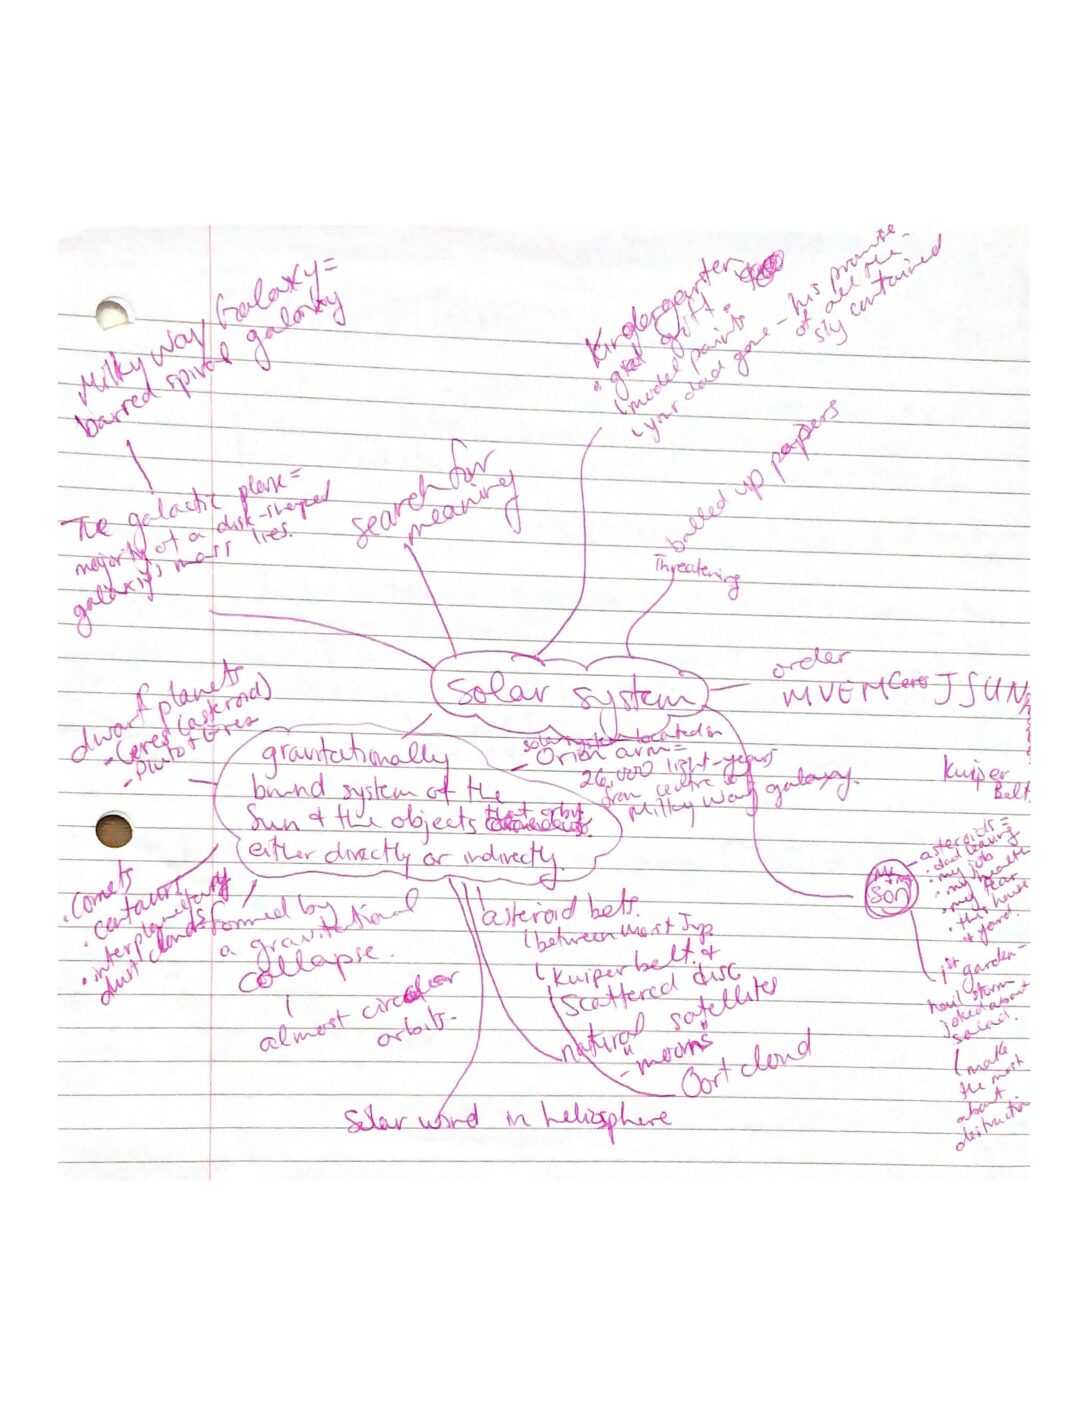 Milky Way Galaxy =
barred spiral galaxy
The galactic plane =
majority of a disk-shaped
galaxy's mass lies.
search for
meaning
Kindergarten
grad gift
(model paints
your dad gone - his promise
of all the
sky contained
balled up papers
Threatening
solar system
order
MVEM Ceres JSUN
Kuiper
Belt
dwarf planets
- Ceres (asteroid)
- Pluto + Eres
gravitationally
bound system of the
Sun & the objects that orbit
either directly or indirectly.
solar system located in
- Orion arm =
26,000 light-years
from centre of
Milky Way galaxy.
son
- asteroids =
• dad leaving
• my job
• my health
• my fear
• this house
+ yard.
1st garden -
hail storm
joked about
salad.
(make
the most
about
destruction
• Comets
• centaurs
• interplanetary
dust clouds
formed by
a gravitational
collapse.
almost circular
orbits-
asteroid belts.
(between Mars + Jup.
(Kuiper belt. +
Scattered disc
natural satellites
- "moons"
Oort cloud
Solar wind in heliosphere